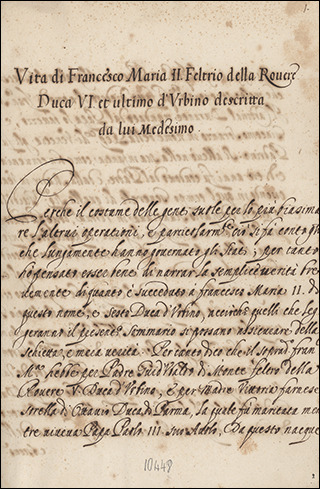 1.
Vita di Francesco Maria II Feltrio della Rovere
Duca VI et ultimo d'Vrbino descritta
da lui Medesimo.
Perche il costume delle genti suole per lo più biasima
re l'altrui operationi, e particolarmte ciò si fà contro gli
che lungamente hanno gouernato gli Stati; per tanto
hò pensato esser bene di narrar la semplice uerità bre
uemente di quanto è succeduto à francesco Maria II. di
questo nome, e Sesto Duca d'Vrbino, acciochè quelli che leg
geranno il presente Sommario si possano assicurare della
schietta, e mera uerità. Per tanto dico che il soprado fran
Ma hebbe per Padre Guid'Vbaldo di Monte feltro della
Rouere V. Duca d'Vrbino, e per Madre Vittoria farnese
sorella di Ottauio Duca di Parma, la quale fu maritata men
tre uiueua Papa Paolo III suo Auolo, Da questo nacque
10449